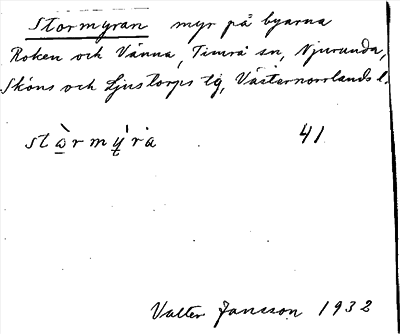 Stormyran myr på byarna
Roken och Vänna, Timrå sn, Njurunda,
Sköns och Ljustorps tg, Västernorrlands l.
stὼrmý̱ra 41
Valter Jansson 1932